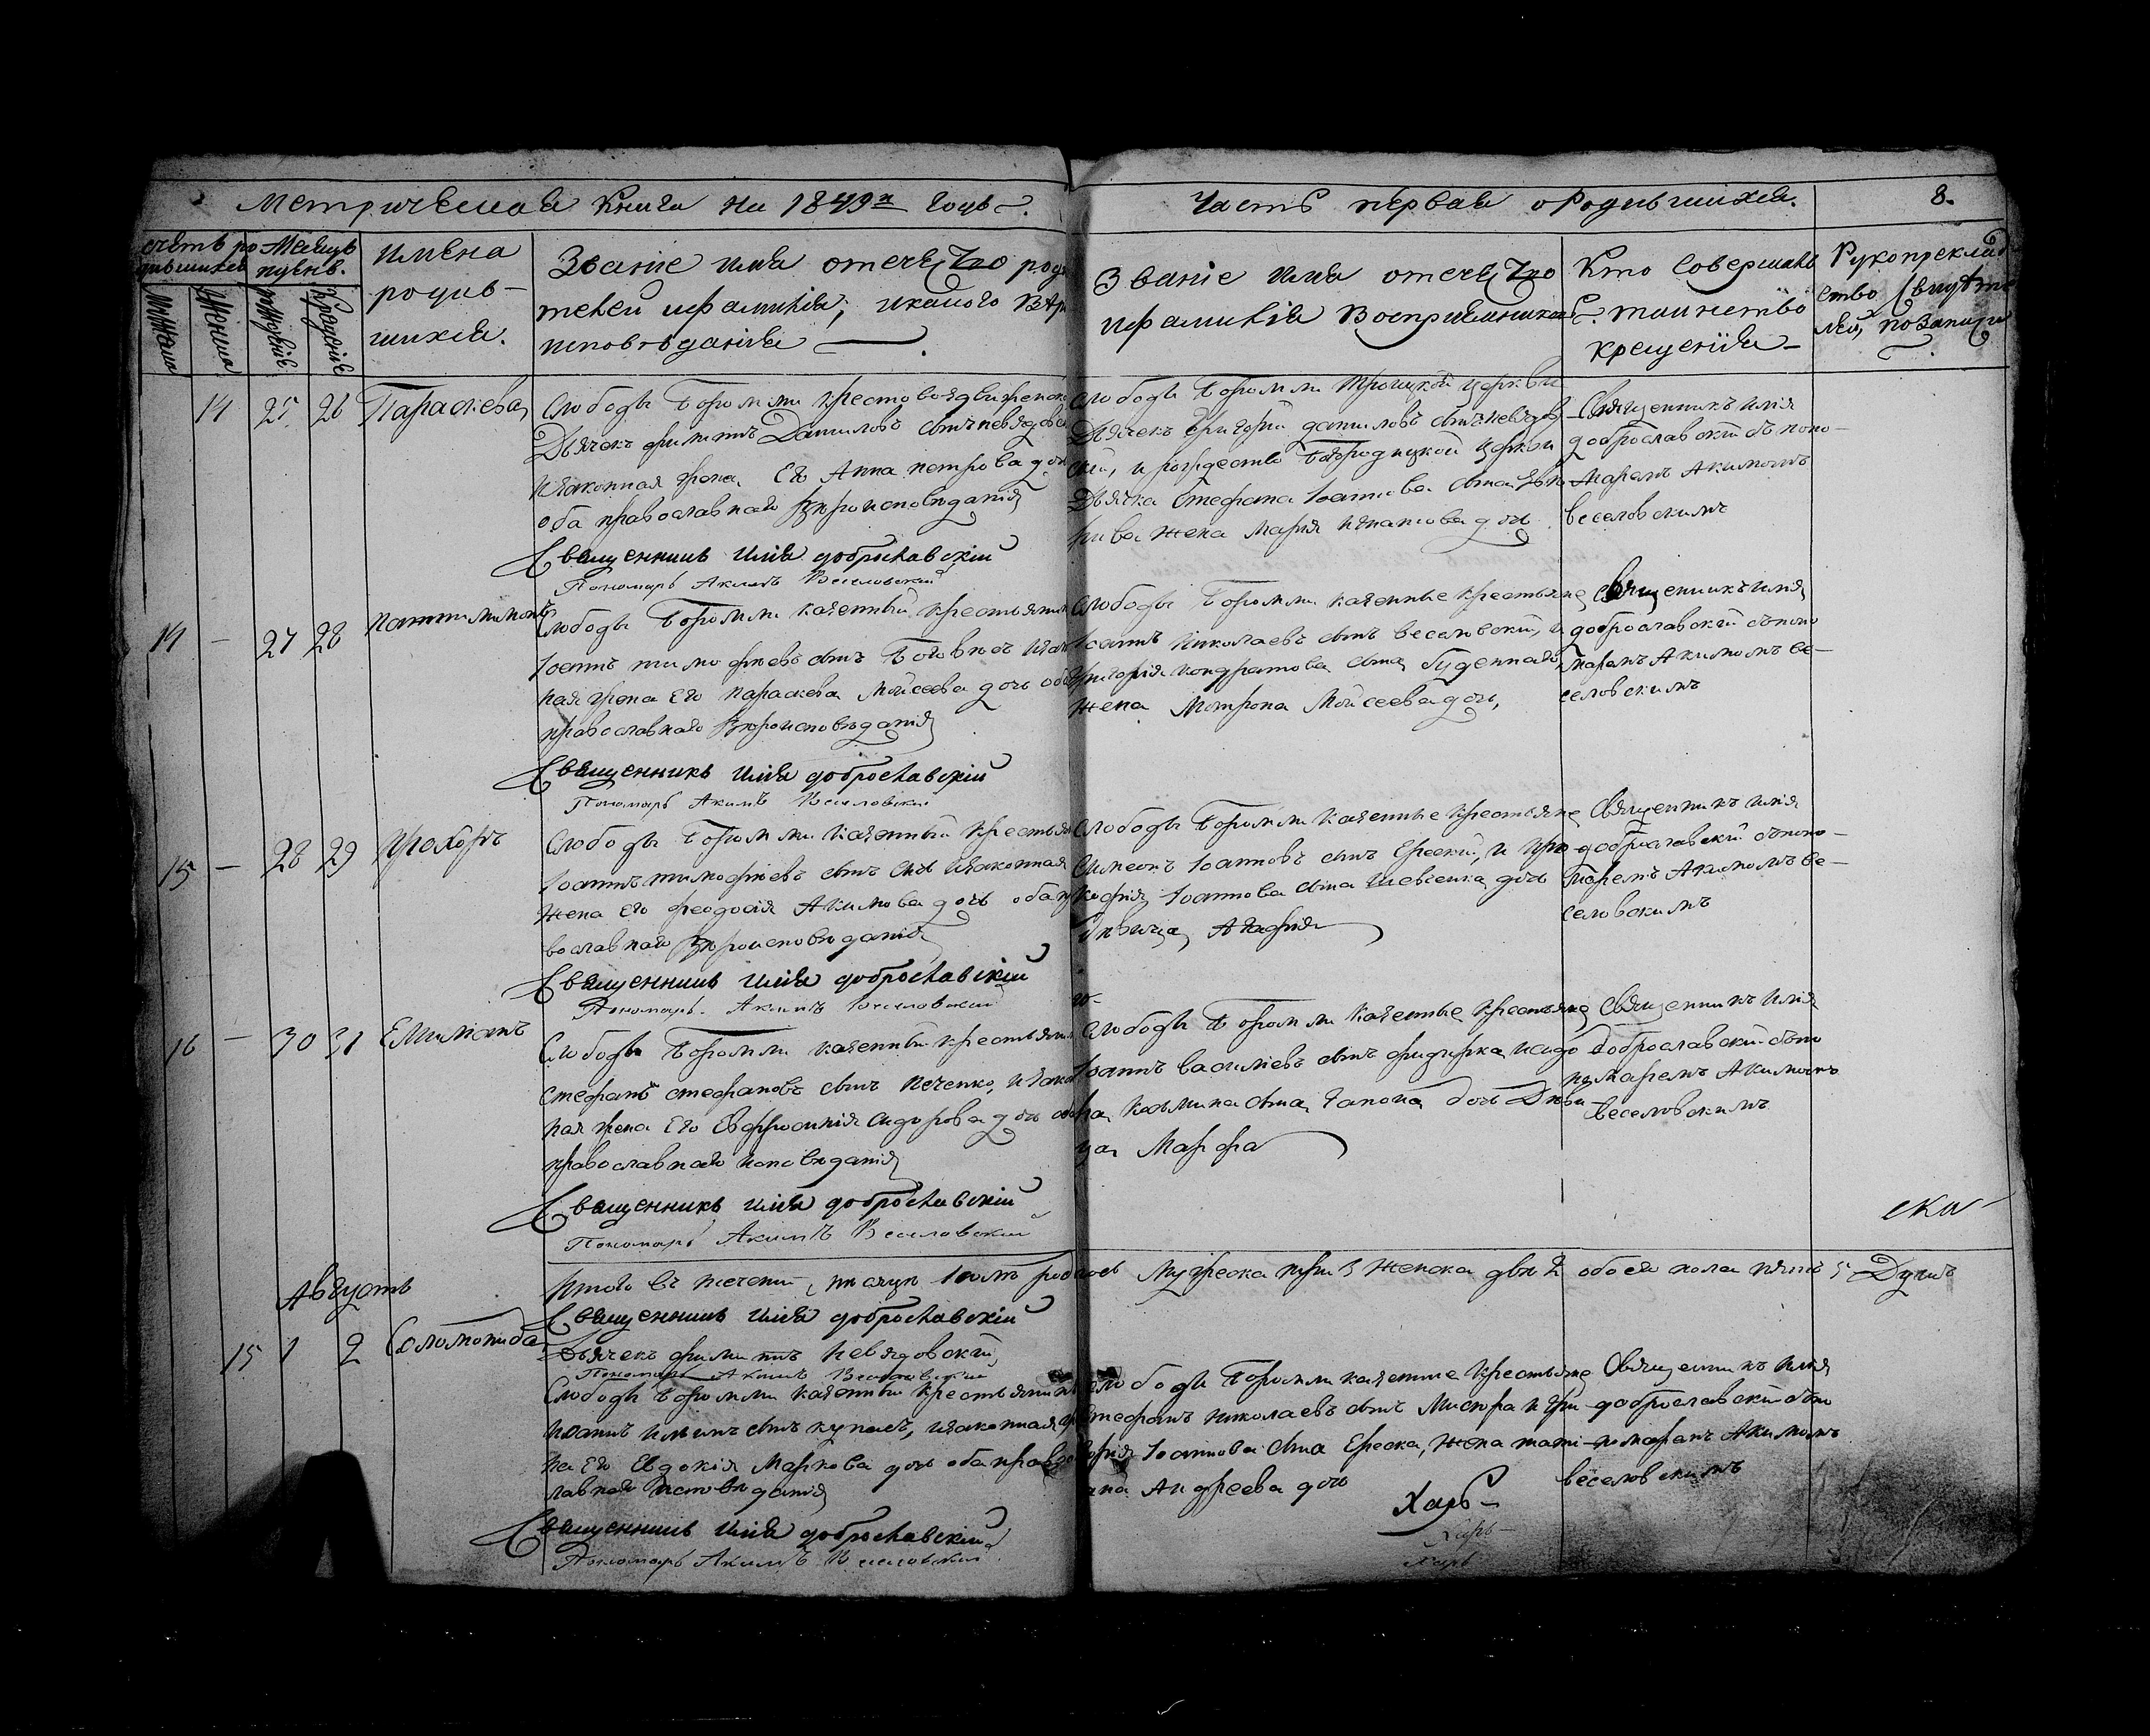 Метрическая Книга на 1849й годъ
Часть первая о родившихся.
8.
счетъ ро
дившихся
Мужеска
Женска
Месяцъ
и день.
рожденіе
Крещеніе
Имена
родив-
шихся.
Званіе имя отечество роди
телей и фамилія, и какого вѣро
исповѣданія
Званіе имя отечество
и фамилія Воспріемниковъ
Кто совершалъ
таинство
крещенія
Рукоприклад
ство свидѣте
лей по записи
14 25 26 Параскева
Слободы Боромли крестовоздвиженской
Дьячекъ Филиппъ Даниловъ сынъ
и законная жена Его Анна петрова дочь
оба православнаго вѣроисповѣданія
Священникъ Илія доброславскій
Пономарь Акимъ Веселовский
Слободы Боромли троицкой церкви
Дьячекъ Григорій даниловъ сынъ
и рождество Богородицкой церкви
Дьячка Стефана Іоаннова сына
жена Мария Игнатова дочь
Священникъ Илія
доброславскій съ поно-
маремъ Акимомъ
веселовскимъ
14 - 27 28 пантилимонъ
Слободы Боромли казенный крестьянин
Іоаннъ тимофѣевъ сынъ и закон
ная жена Его параскева Мойсеева дочь оба
православнаго Вѣроисповѣданія
Священникъ Илія доброславскій
Пономарь Акимъ Веселовский
Слободы Боромли казенные крестьяне
Іоаннъ Николаевъ сынъ веселовский, и
Григорія кондратова сына
жена Мотрона Мойсеева дочь,
Священникъ Илія
доброславский съ поно
маремъ Акимомъ ве-
селовскимъ
15 - 28 29 Прохоръ
Слободы Боромли казенный крестьян
Іоаннъ тимофѣевъ сынъ и законная
жена Его феодосія Акимова дочь оба пра
вославнаго Вѣроисповѣданія
Священникъ Илія доброславскій
Пономарь Акимъ Веселовский
Слободы Боромли казенные крестьяне
Симеонъ Іоанновъ сынъ и Про
кофія Іоаннова сына Шевченка дочь
дѣвица Агафія
Священникъ Илія
доброславский съ поно-
маремъ Акимомъ ве-
селовскимъ
16 - 30 31 Емилианъ
Слободы Боромли казенный крестьянин
стефанъ стефановъ сынъ и закон
ная жена Его Евфросинія Сидорова дочь оба
православнаго исповѣданія
Священникъ Илія доброславскій
Пономарь Акимъ Веселовский
Слободы Боромли казенные крестьяне
Іоаннъ василіевъ сынъ
козьмина сына дочь Дѣви-
ца Марфа
Священникъ Илія
доброславский съ по
номаремъ Акимомъ
веселовскимъ
ска
Итого въ течении мѣсяца Іюля родилось Мужеска три 3 Женска двѣ 2 обоего пола пять 5 Душъ
Священникъ Илія доброславскій
Дьячекъ филиппъ
Пономарь Акимъ Веселовский
Августъ
15 1 2 Соломонида
Слободы Боромли казенный крестьянинъ
Иоаннъ Ильинъ сынъ и законная же
на Его Евдокія Маркова дочь оба правос
лавнаго исповѣданія
Священникъ Илія доброславскій
Пономарь Акимъ Веселовский
Слободы Боромли казенные крестьяне
Стефанъ Николаевъ сынъ и Гри
горія Іоаннова сына жена тати-
ана Андреева дочь
Священникъ Илія
доброславский съ по
номаремъ Акимомъ
веселовскимъ
Харь-
Харь-
Харь